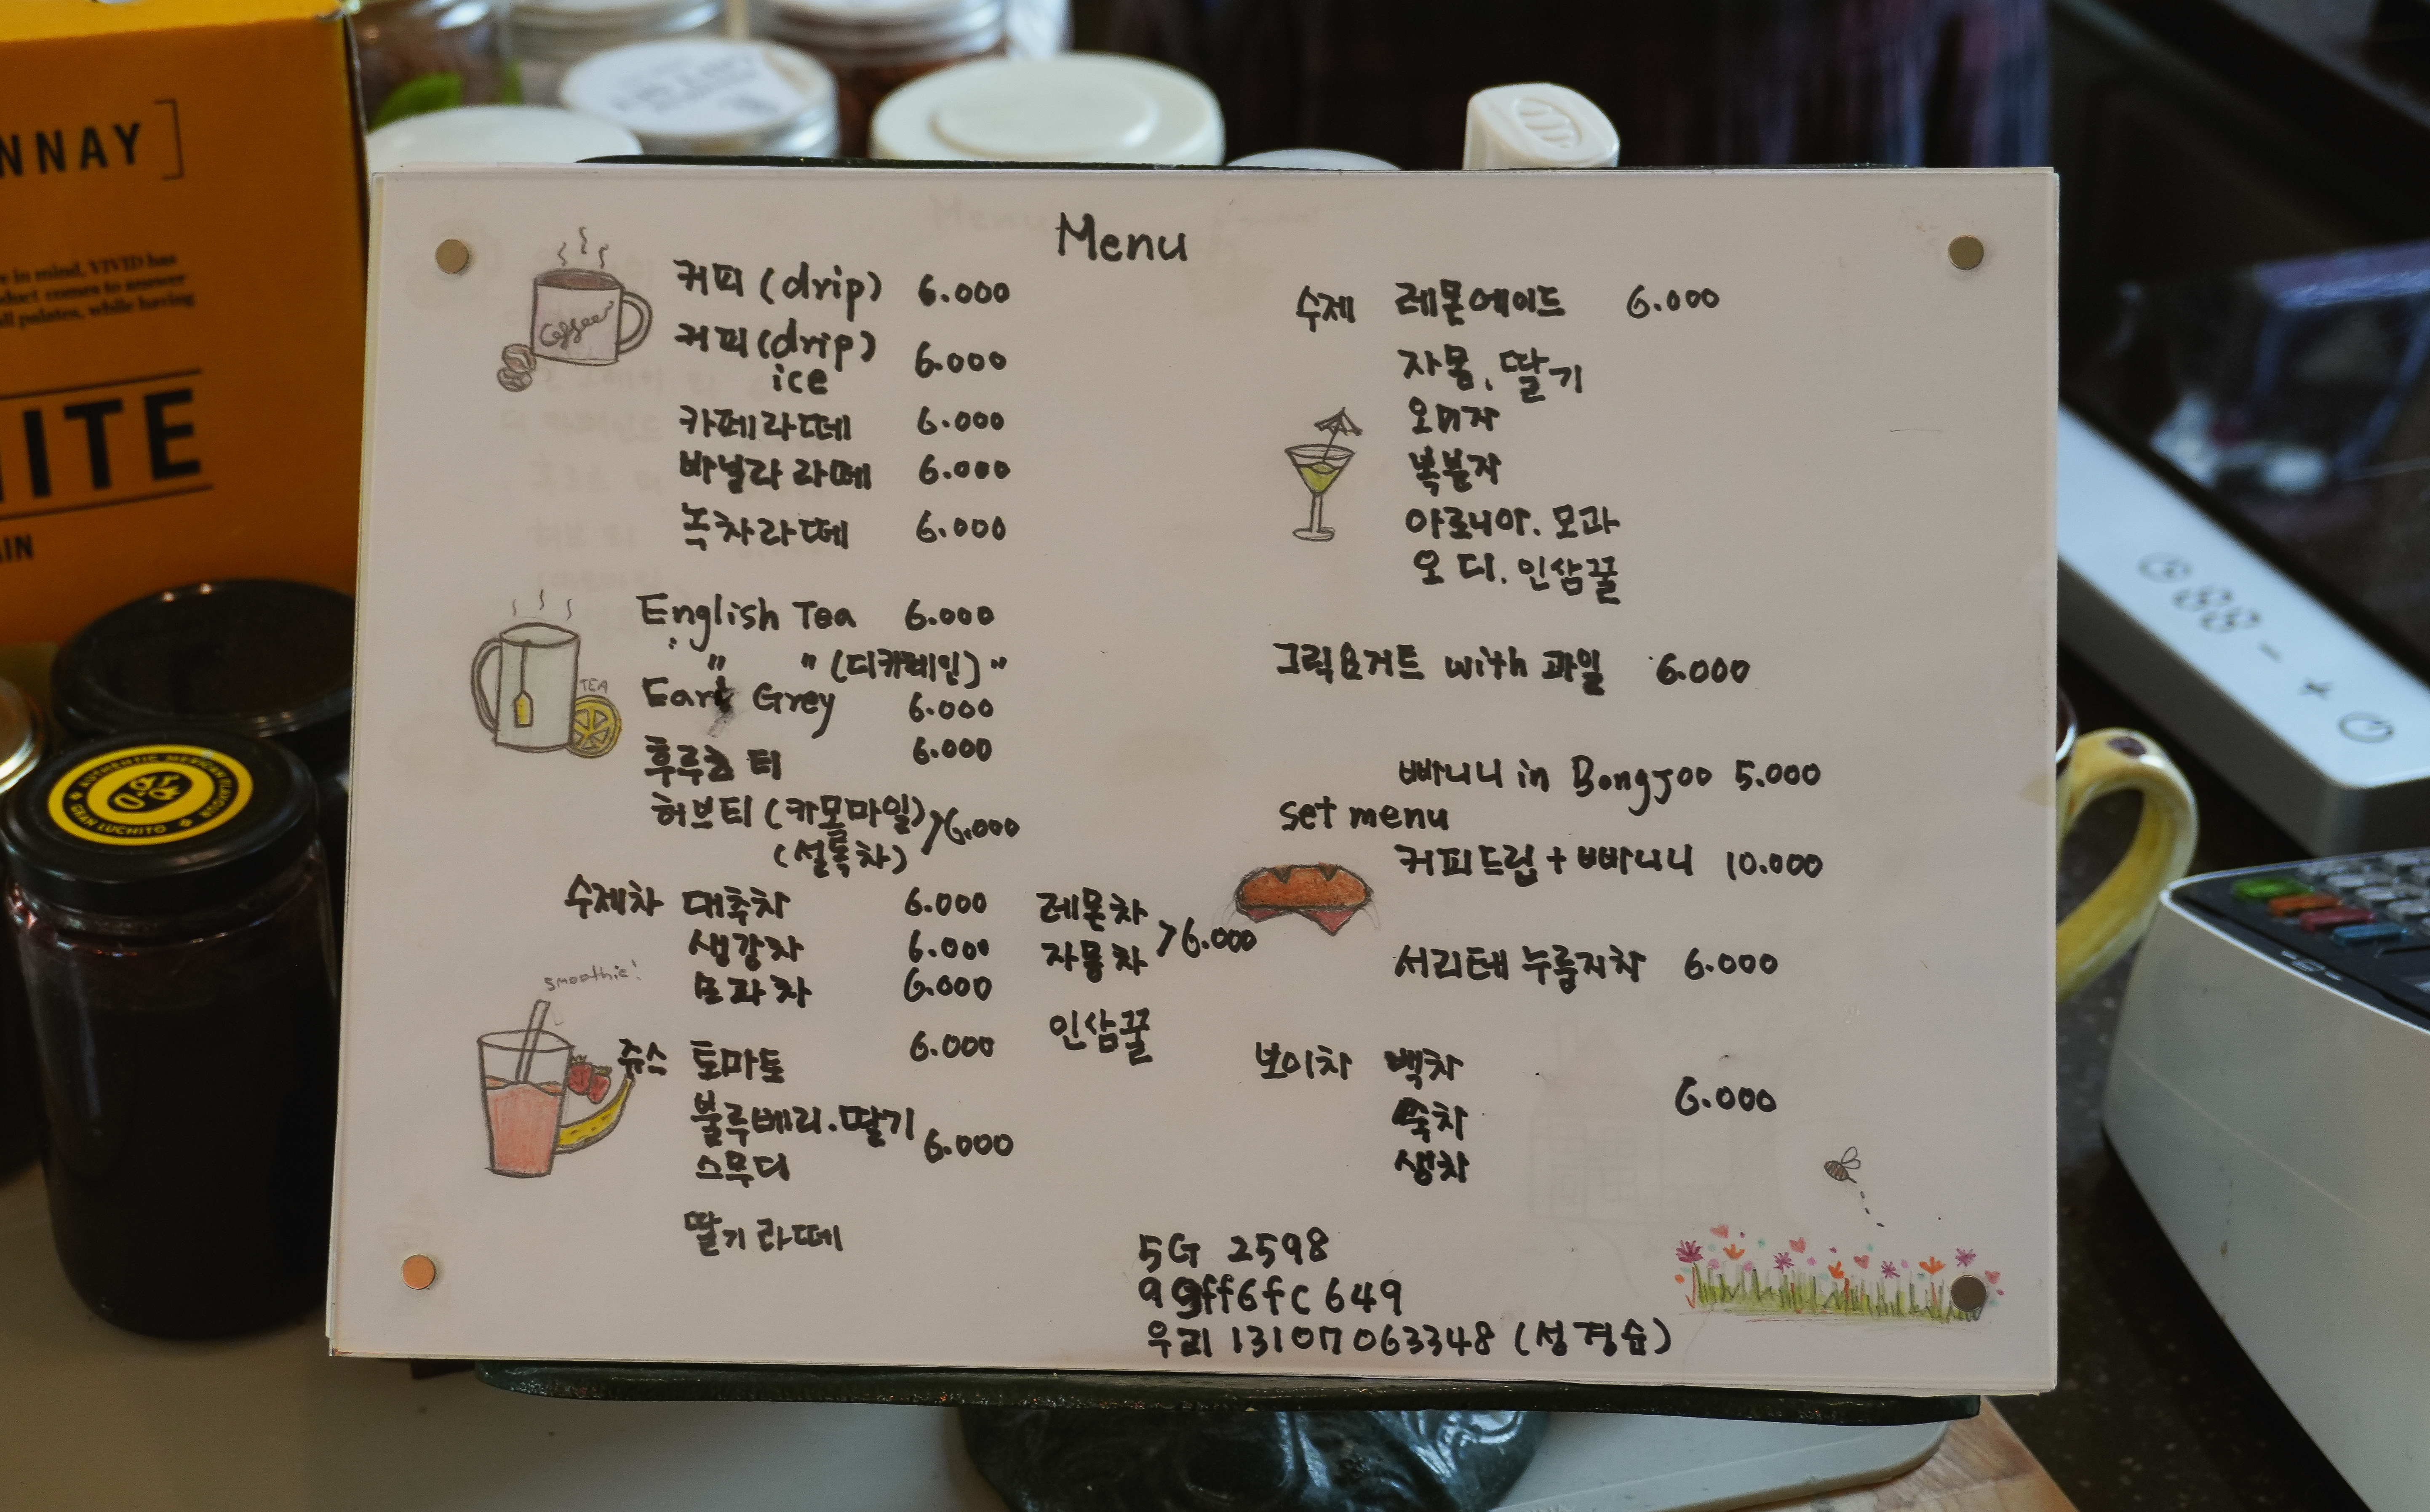 Menu
커피 (drip) 6.000
커피 (drip) ice 6.000
카페라떼 6.000
바닐라 라떼 6.000
녹차라떼 6.000
English Tea 6.000
" " (디카페인) "
Earl Grey 6.000
후루츠 티 6.000
허브티 (카모마일) > 6.000
(설록차)
수제차 대추차 6.000
생강차 6.000
모과차 6.000
레몬차 > 6.000
자몽차
인삼꿀
쥬스 토마토 6.000
불루베리.딸기 6.000
스무디
딸기 라떼
수제 레몬에이드 6.000
자몽, 딸기
오미자
복분자
아로니아. 모과
오디. 인삼꿀
그릭요거트 with 과일 6.000
빠니니 in BongJoo 5.000
set menu
커피드립 + 빠니니 10.000
서리태 누룽지차 6.000
보이차 백차
숙차 6.000
생차
5G 2598
99ff6fc649
우리 13107063348 (성경숨)
Coffee
TEA
smoothie!
NNAY ]
e in mind, VIVID has
duct comes to answer
ll palates, while having
ITE
IN
AUTHENTIC MEXICAN FLAVOUR
GRAN LUCHITO